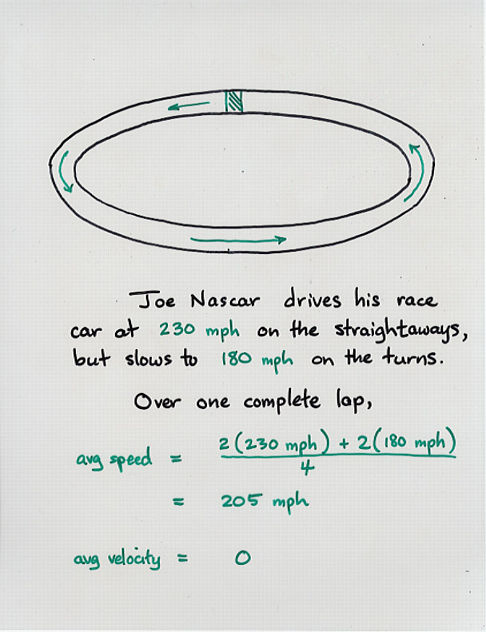 Joe Nascar drives his race
car at 230 mph on the straightaways,
but slows to 180 mph on the turns.
Over one complete lap,
avg speed = 2(230 mph) + 2(180 mph) / 4
= 205 mph
avg velocity = 0